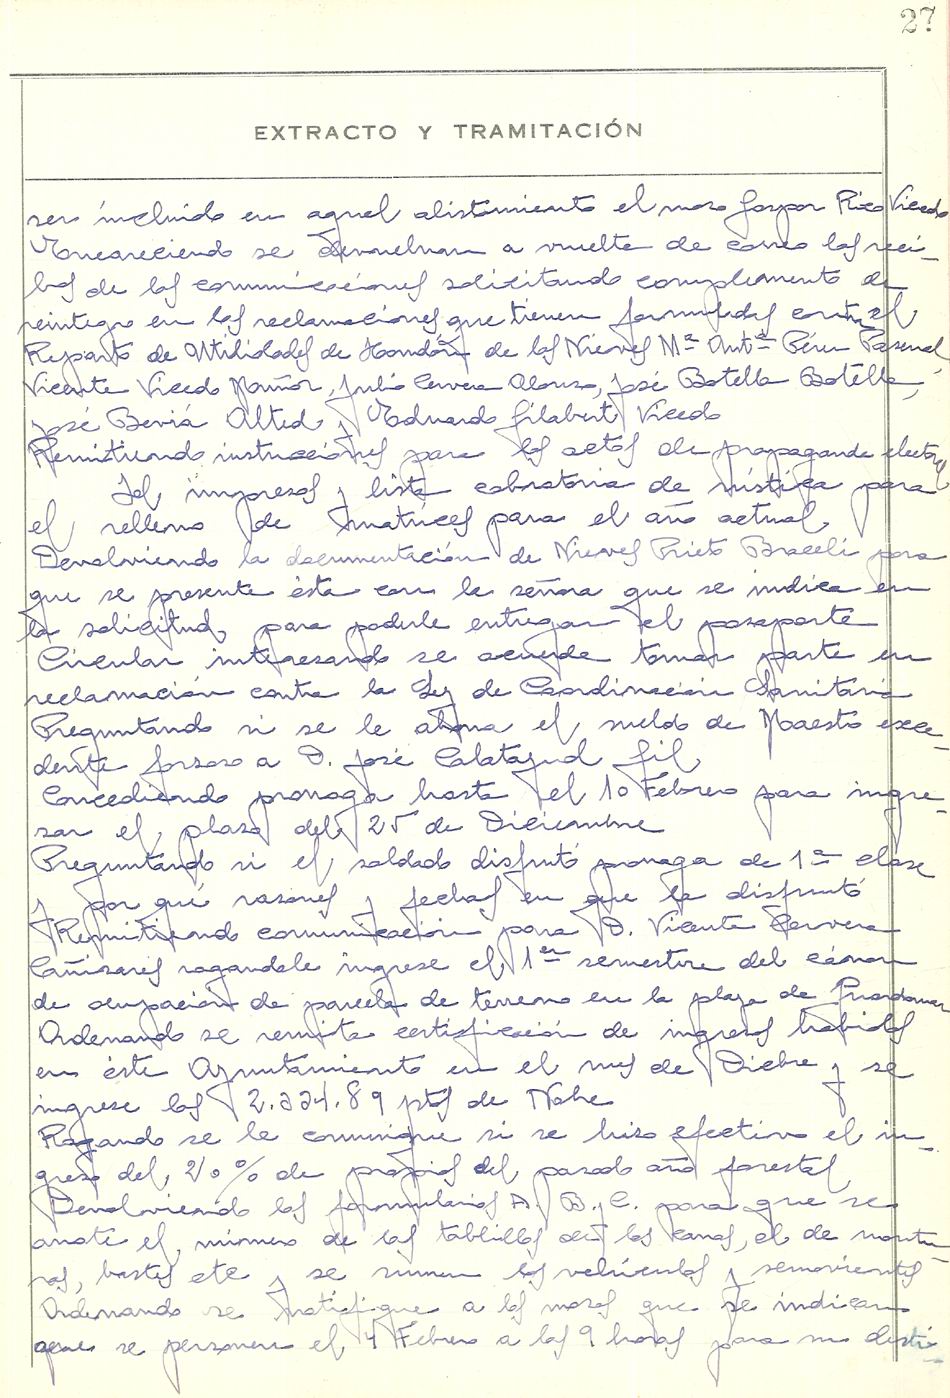 27
EXTRACTO Y TRAMITACIÓN
ser incluido en aquel alistamiento el mozo Gaspar Rico Vicedo
Encareciendo se devuelvan a vuelta de correo los reci-
bos de las comunicaciones solicitando complemento de
reintegro en las reclamaciones que tienen formuladas contra el
Reparto de Utilidades de Hondón de las Nieves Mª Antª Pérez Pascual,
Vicente Vicedo Muñoz, Julio Cervera Alonso, José Botella Botella,
José Beviá Alted, y Eduardo Gilabert Vicedo
Remitiendo instrucciones para los actos de propaganda electoral
Id, impresos y lista cobratoria de rústica para
el relleno de matrices para el año actual,
Devolviendo la documentación de Nieves Prieto Braceli para
que se presente ésta con la señora que se indica en
la solicitud, para poderle entregar el pasaporte
Circular interesando se acuerde tomar parte en
reclamación contra la Ley de Coordinación Sanitaria
Preguntando si se le abona el sueldo de Maestro exce-
dente forzoso a D. José Calatayud Gil
Concediendo prorroga hasta el 10 Febrero para ingre-
sar el plazo del 25 de Diciembre
Preguntando si el soldado disfrutó prorroga de 1ª clase
y por qué razones y fechas en que la disfrutó
Remitiendo comunicación para D. Vicente Cervera
Cañizares rogandole ingrese el 1er semestre del cánon
de ocupación de parcela de terreno en la playa de Guardamar
Ordenando se remita certificación de ingresos habidos
en éste Ayuntamiento en el mes de Dicbre y se
ingrese las 2.334.89 ptas de Nbre
Rogando se le comunique si se hizo efectivo el in-
greso del 20% de propios del pasado año forestal
Devolviendo los formularios A. B. C. para que se
anote el número de las tablillas de los carros, el de montu-
ras, bastes etc y se sumen los vehículos y semovientes
Ordenando se notifique a los mozos que se indican
que se personen el 4 Febrero a las 9 horas para su desti-